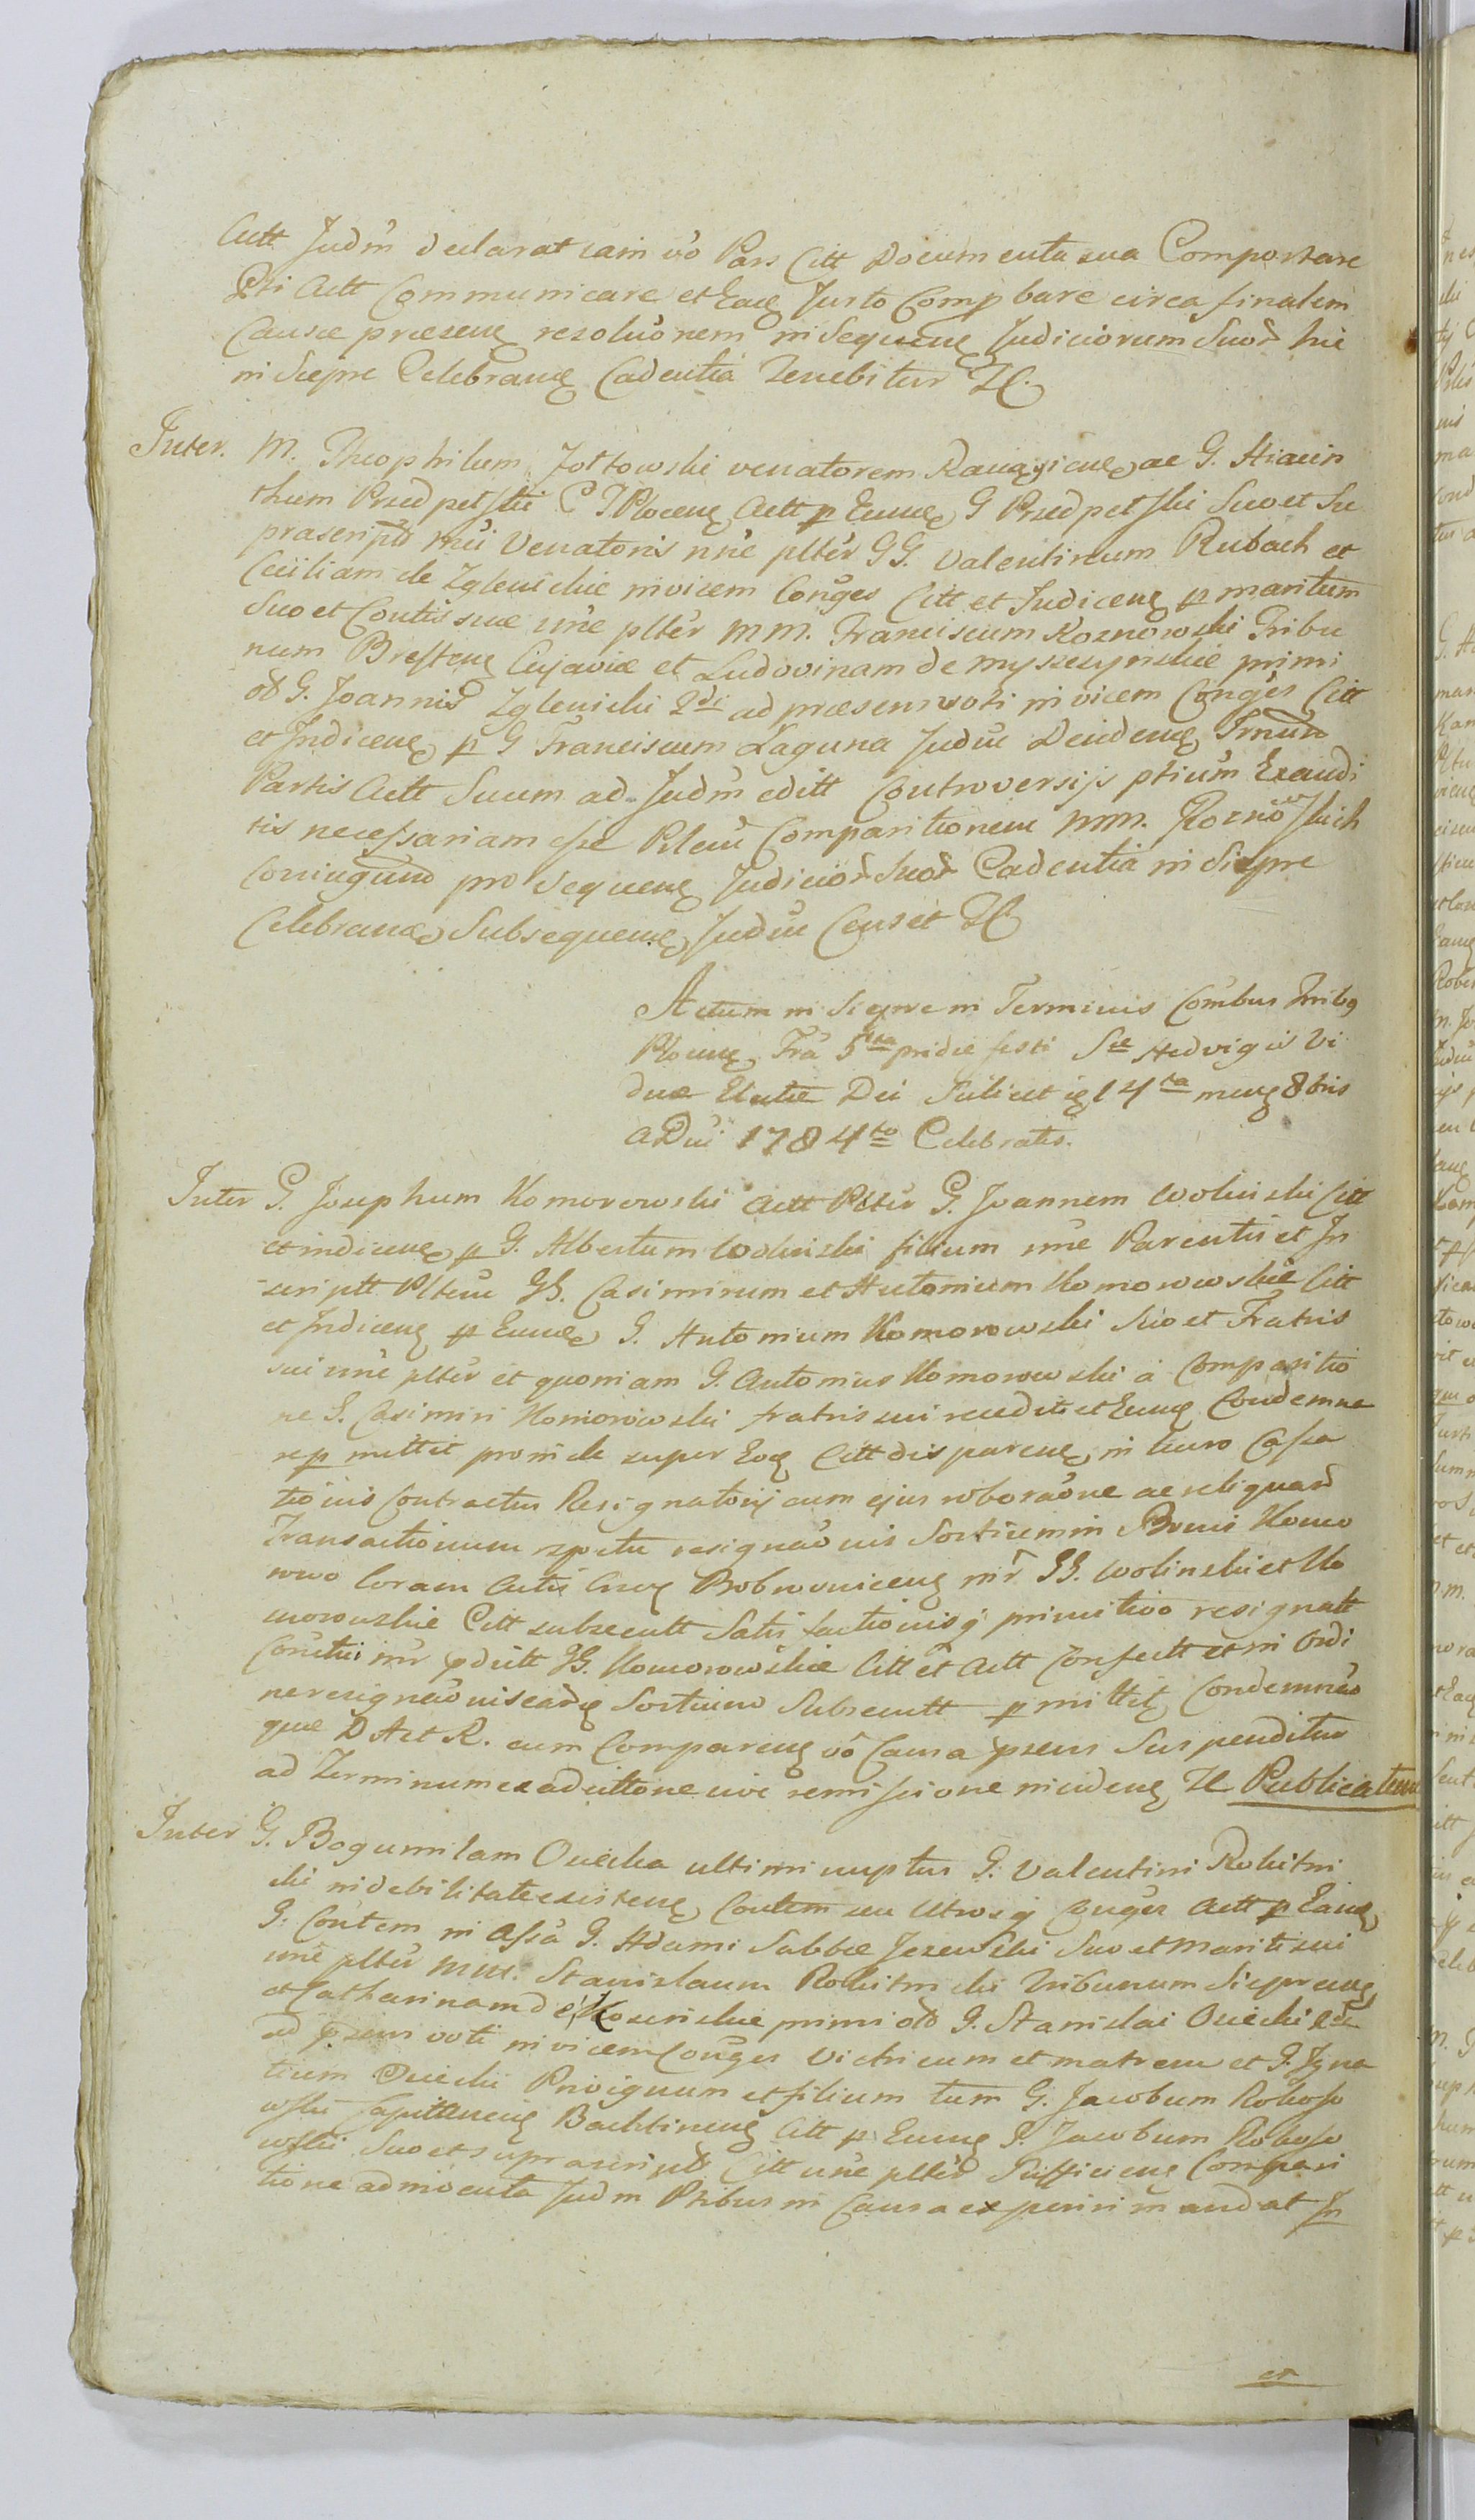 Actt Judm declarat eam vo Pars Citt Documenta sua Comportare
Pti Actt Communicare et Eaq Jurto Comp bare circa finalem
Causæ præsens resoluonem in Sequens Judiciorum Suor hic
in Siepre Celebrans Cadentia Tenebitur Zc.
Inter. M. Theophilum Zołtowski venatorem Ravas ac G. Hiacin
thum Przedpełski C T Plocens Actt p Eunde G Przedpełski Suo et Su
prascripti Mci Venatoris nne plter GG. Valentinum Rubach et
Ceciliam de Zglenickie invicem Conges Citt et Indicens p maritum
Suo et Contis suæ nne plter MM. Franciscum Koznowski Tribu
num Brestens Cujaviæ et Ludovinam de Myszczynskie primi
olo G. Joannis Zglenicki 2di ad præsens voti invicem Conges Citt
et Indicens p G Franciscum Łaguna Judm Decidens Trnum
Partis Actt Suum ad Judm editt Controversijs ptium Exaudi
tis necessariam esse Psلem Comparitionem MM. Koznowskich
Coniugum pro Sequens Judicior Suor Cadentia in Siepre
Celebrans Subsequens Judm Censet Zc
Actum in Siepre in Terminis Conibus Tribq
Plocens Fra 5ta pridie festi Stæ Hedvigis Vi
duæ Electæ Dei Scilicet 14ta mens 8bris
A Dni 1784to Celebratis.
Inter G. Josephum Komorowski Actt Plter G. Joannem Wolinski Citt
et indicens p G. Albertum Wolinski filium nne Parentis et In
scriptt Pltem GG. Casimirum et Antonium Komorowskie Citt
et Indicens p Eunde G. Antonium Komorowski Suo et Fratris
sui nne plter et quoniam G. Antonius Komorowski a Comparitio
ne G. Casimiri Komorowski fratris sui recedit et Eunq Condemna
re p mittit proinde super Eoq Citt disparens in lucro Cassa
tionis Contractus Resignatorij cum ejus roboraone ac reliquar
Transactionum resignaonis Sortium in Bonis Komo
rowo Coram Actis Bobrownicens inr GG. Wolinski et Ko
morowskie Citt subsecutt Satisfactionisq primitivo resignatt
inr GG. Komorowskie Citt et Actt Confectt et in Ordi
ne resignaonis earq Sortium Subsecutt p mittit Condemnao
que D Act R. cum Comparens vo Causa psens Suspenditur
ad Terminum ex adcittone sive remissione incidens Zc Publicatum
Inter G. Bogumilam Osiecka ultimi nuptus G. Valentini Rokitni
cki in debilitate existens Contem seu Utrosq Conges Actt p Eang
G. Contem in Assa G. Adami Sabbæ Jezewski Suo et Mariti sui
nne plter MM. Stanislaum Rokitnicki Tribunum Sieprcens
et Catharinam de Koscinskie primi olo G. Stanislai Osiecki 2di
ad psens voti invicem Conges Victricum et matrem et G. Igna
tium Osiecki Privignum et filium tum G. Jacobum Rokoso
wski Bachtinens Citt p Eunq G. Jacobum Rokoso
wski Suo et suprascriptt Citt nne plter Sufficiens Compari
tione admventa Judm Ptibus in Causa experiri mandat In
et